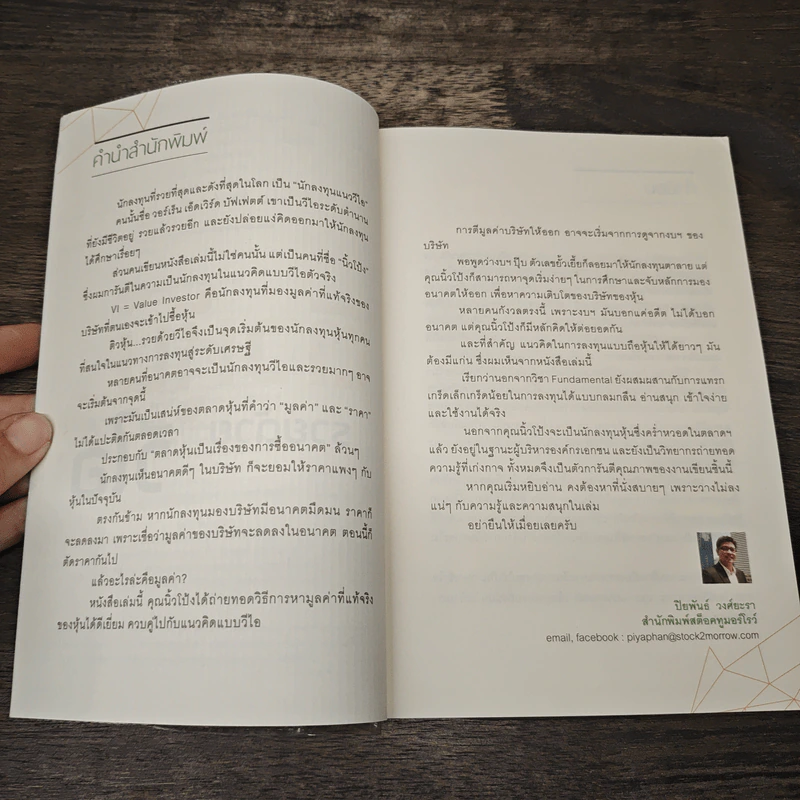 คำนำสำนักพิมพ์
นักลงทุนที่รวยที่สุดและดังที่สุดในโลก เป็น “นักลงทุนแนววีไอ”
คนนั้นชื่อ วอร์เร็น เอ็ดเวิร์ด บัฟเฟตต์ เขาเป็นวีไอระดับตำนาน
ที่ยังมีชีวิตอยู่ รวยแล้วรวยอีก และยังปล่อยแง่คิดออกมาให้นักลงทุน
ได้ศึกษาเรื่อยๆ
ส่วนคนเขียนหนังสือเล่มนี้ไม่ใช่คนนั้น แต่เป็นคนที่ชื่อ “นิ้วโป้ง”
ซึ่งผมการันตีในความเป็นนักลงทุนในแนวคิดแบบวีไอตัวจริง
VI = Value Investor คือนักลงทุนที่มองมูลค่าที่แท้จริงของ
บริษัทที่ตนเองจะเข้าไปซื้อหุ้น
ติวหุ้น...รวยด้วยวีไอจึงเป็นจุดเริ่มต้นของนักลงทุนหุ้นทุกคน
ที่สนใจในแนวทางการลงทุนสู่ระดับเศรษฐี
หลายคนที่อนาคตอาจจะเป็นนักลงทุนวีไอและรวยมากๆ อาจ
จะเริ่มต้นจากจุดนี้
เพราะมันเป็นเสน่ห์ของตลาดหุ้นที่คำว่า “มูลค่า” และ “ราคา”
ไม่ได้แปะติดกันตลอดเวลา
ประกอบกับ “ตลาดหุ้นเป็นเรื่องของการซื้ออนาคต” ล้วนๆ
นักลงทุนเห็นอนาคตดีๆ ในบริษัท ก็จะยอมให้ราคาแพงๆ กับ
หุ้นในปัจจุบัน
ตรงกันข้าม หากนักลงทุนมองบริษัทมีอนาคตมืดมน ราคาก็
จะลดลงมา เพราะเชื่อว่ามูลค่าของบริษัทจะลดลงในอนาคต ตอนนี้ก็
ตัดราคากันไป
แล้วอะไรล่ะคือมูลค่า?
หนังสือเล่มนี้ คุณนิ้วโป้งได้ถ่ายทอดวิธีการหามูลค่าที่แท้จริง
ของหุ้นได้ดีเยี่ยม ควบคู่ไปกับแนวคิดแบบวีไอ
การตีมูลค่าบริษัทให้ออก อาจจะเริ่มจากการดูจากงบฯ ของ
บริษัท
พอพูดว่างบฯ ปุ๊บ ตัวเลขยั้วเยี้ยก็ลอยมาให้นักลงทุนตาลาย แต่
คุณนิ้วโป้งก็สามารถหาจุดเริ่มง่ายๆ ในการศึกษาและจับหลักการมอง
อนาคตให้ออก เพื่อหาความเติบโตของบริษัทของหุ้น
หลายคนกังวลตรงนี้ เพราะงบฯ มันบอกแค่อดีต ไม่ได้บอก
อนาคต แต่คุณนิ้วโป้งก็มีหลักคิดให้ต่อยอดกัน
และที่สำคัญ แนวคิดในการลงทุนแบบถือหุ้นให้ได้ยาวๆ มัน
ต้องมีแก่น ซึ่งผมเห็นจากหนังสือเล่มนี้
เรียกว่านอกจากวิชา Fundamental ยังผสมผสานกับการแทรก
เกร็ดเล็กเกร็ดน้อยในการลงทุนได้แบบกลมกลืน อ่านสนุก เข้าใจง่าย
และใช้งานได้จริง
นอกจากคุณนิ้วโป้งจะเป็นนักลงทุนหุ้นซึ่งคร่ำหวอดในตลาดฯ
แล้ว ยังอยู่ในฐานะผู้บริหารองค์กรเอกชน และยังเป็นวิทยากรถ่ายทอด
ความรู้ที่เก่งกาจ ทั้งหมดจึงเป็นตัวการันตีคุณภาพของงานเขียนชิ้นนี้
หากคุณเริ่มหยิบอ่าน คงต้องหาที่นั่งสบายๆ เพราะวางไม่ลง
แน่ๆ กับความรู้และความสนุกในเล่ม
อย่ายืนให้เมื่อยเลยครับ
ปิยพันธ์ วงศ์ยะรา
สำนักพิมพ์สต็อคทูมอร์โรว์
email, facebook : piyaphan@stock2morrow.com